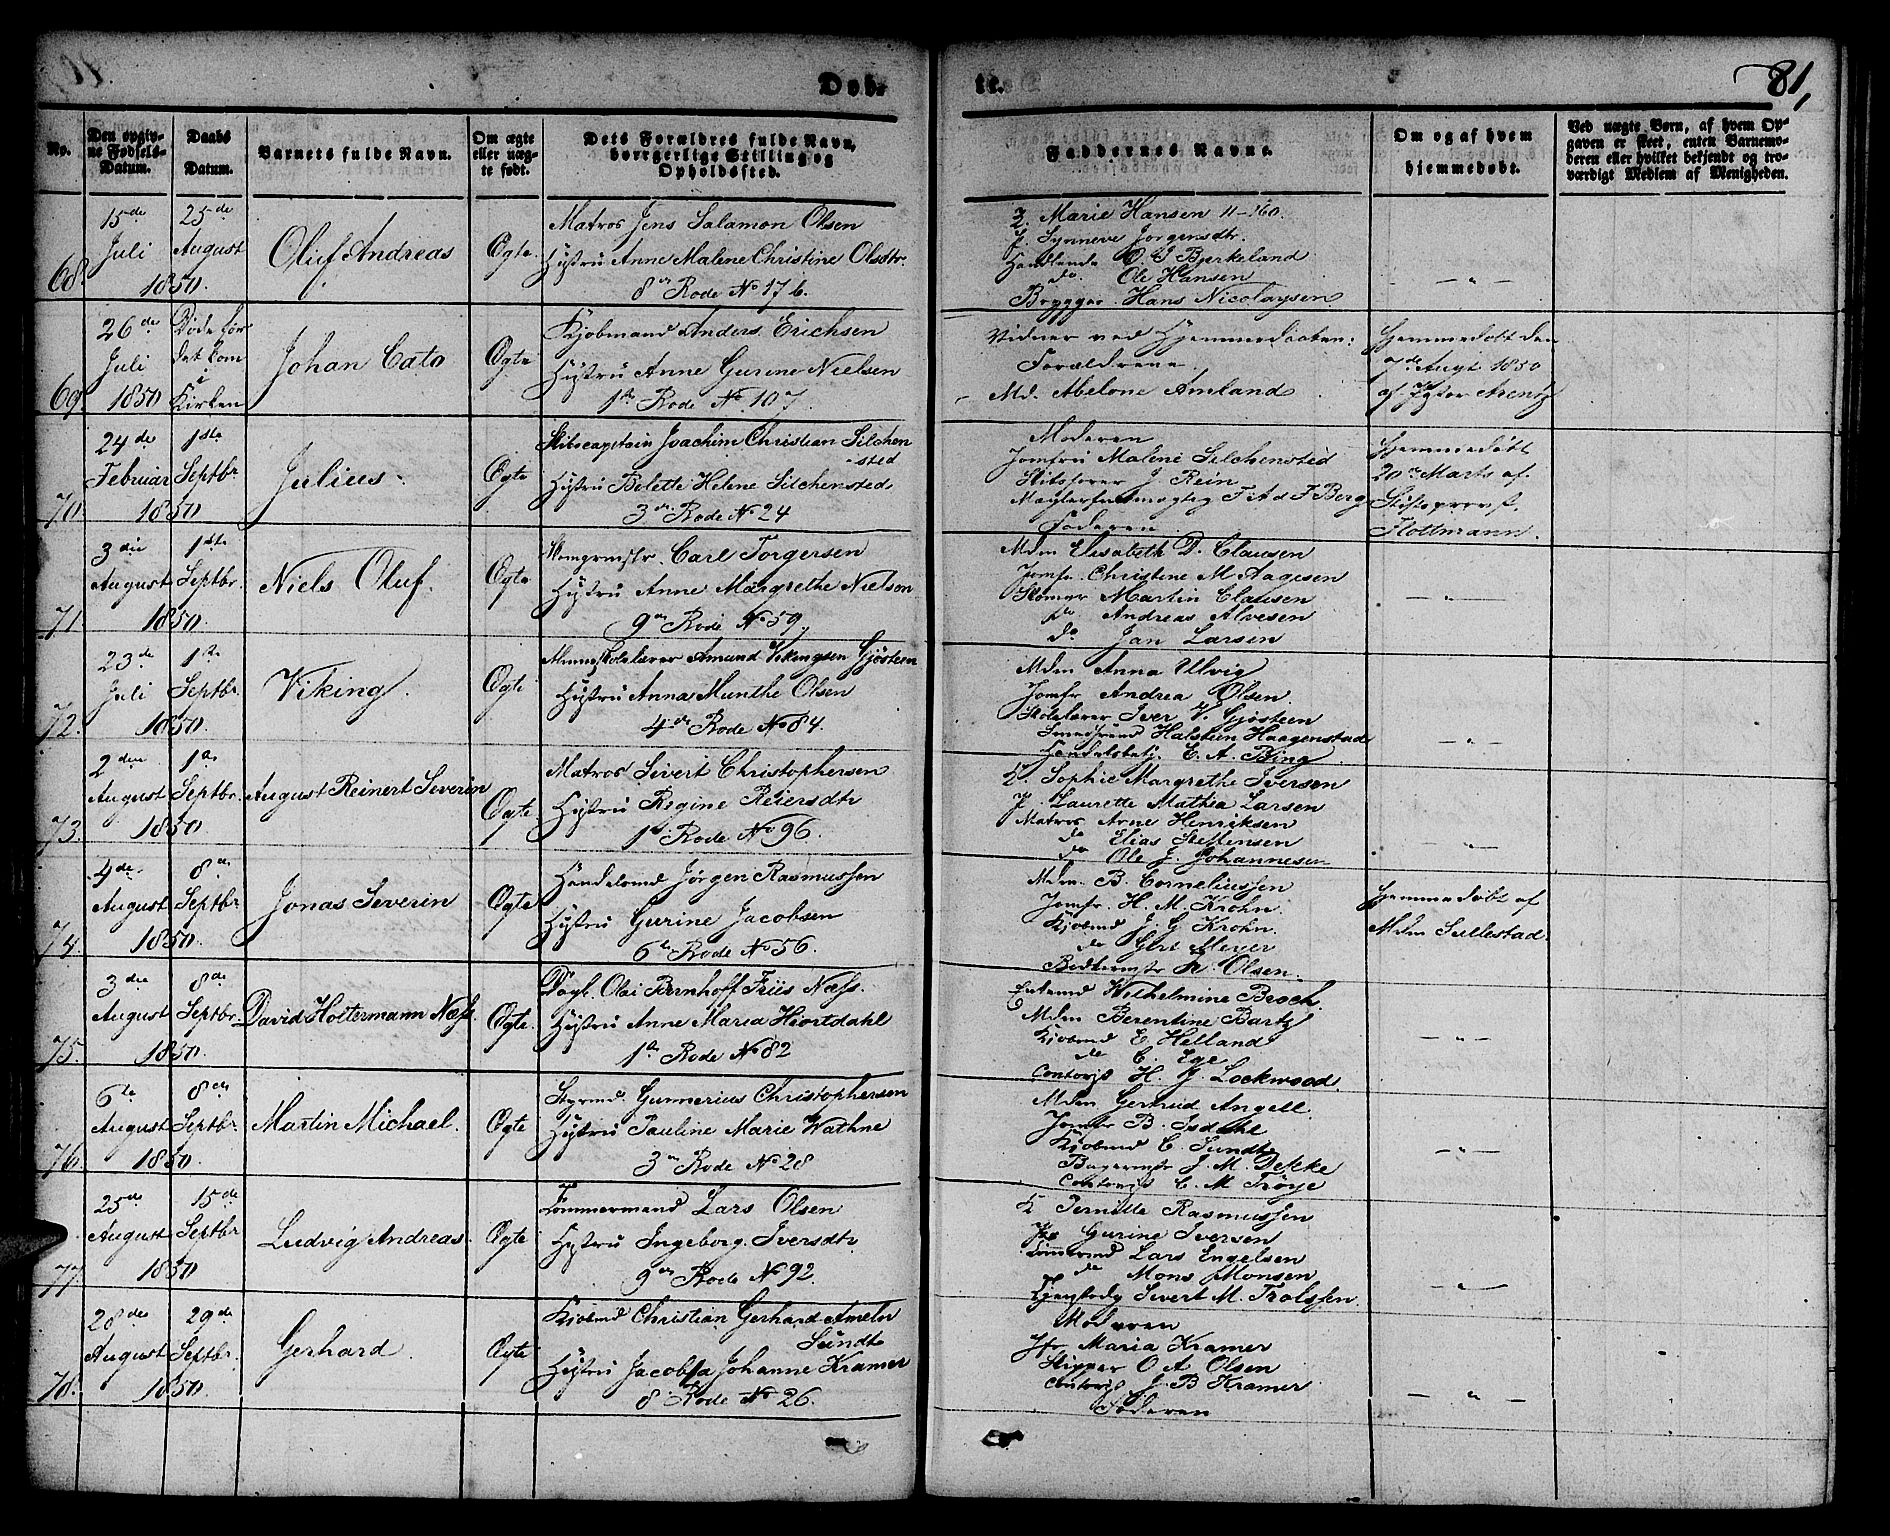 Døb-
te.
81,
No.
Den opgiv-
ne Fødsels-
Datum.
Daabs
Datum.
Barnets fulde Navn.
Om ægte
eller uæg-
te født.
Dets Forældres fulde Navn,
borgerlige Stilling og
Opholdssted.
Faddernes Navne.
Om og af hvem
hjemmedøbt.
Ved uægte Børn, af hvem Op-
gaven er skeet, enten Barnemo-
deren eller hvilket bekjendt og tro-
værdigt Medlem af Menigheden.
68.
15de
Juli
1850.
25de
August
Oluf Andreas
Ægte
Matros Jens Salamon Olsen
Hustru Anne Malene Christine Olsdtr.
8de Rode No 176.
K. Marie Hansen 11-160.
P. Synneve Jørgensdtr.
Handlende O. J Bjerkeland
do Ole Hansen
Brygger Hans Nicolaysen
— " —
69.
26de
Juli
1850
Døde før
det kom
i
Kirken
Johan Cato
Ægte
Kjøbmand Anders Erichsen
Hustru Anne Gurine Nielsen
1ste Rode No 107.
Vidner ved Hjemmedaaben:
Forældrene
Md. Abelone Amland
Hjemmedøbt den
7de Augt 1850
af
70.
24de
Februar
1850
1ste
Septbr
Julius.
Ægte
Skibscapitain Joachim Christian Silchen
-sted
Hustru Bolette Helene Silchensted
3die Rode No 24
Moderen
Jomfru Malene Silchensted
Skibsfører J. Rein
Berg
Faderen
Hjemmedøbt
20de Marts af
Stiftsprovst
71.
3die
August
1850.
1ste
Septbr.
Niels Oluf.
Ægte
Carl Torgersen
Hustru Anne Margrethe Nielson
9de Rode No 59.
Mdm Elisabeth D. Clausen
Jomfr. Christine M Aagesen
Martin Clausen
do Andreas Alvesen
do Jan Larsen
— " —
72.
23de
Juli
1850.
1ste
Septbr.
Viking
Ægte
Almueskolelærer Amund Vikingsen Gjøsteen
Hustru Anna Munthe Olsen
4de Rode No 84.
Mdm Anna Ulvig
Jomfr Andrea Olsen
Skolelærer Iver V. Gjøsteen
Halstein Haagenstad
E. A. Bing
— " —
73.
2den
August
1850
1ste
Septbr.
August Reinert Severin
Ægte
Matros Sivert Christophersen
Hustru Regine Reiersdtr
1ste Rode No 96.
K. Sophie Margrethe Iversen
P. Laurette Mathea Larsen
Matros Arne Henriksen
do Elias Steffensen
do Ole J. Johannesen
— " —
74.
4de
August
1850.
8de
Septbr
Jonas Severin
Ægte
Handelsmd Jørgen Rasmussen
Hustru Gurine Jacobsen
6te Rode No 56.
Mdm. B. Corneliussen
Jomfr. H. M. Krohn.
Kjøbmd J. G Krohn.
do Gert Meyer
N. Olsen.
Hjemmedøbt af
Mdm Sellestad.
75.
3die
August
1850.
8de
Septbr.
David Holtermann Næss.
Ægte.
Olai Bernhoff Friis Næss.
Hustru Anne Maria Hiortdahl
1ste Rode No 82
Wilhelmine Broch.
Mdm Berentine Bartz
Kjøbmd E. Helland
do C. Ege
Contorist H. J. Lockwood.
— " —
76.
6te
August
1850.
8de
Septbr.
Martin Michael.
Ægte
Styrmd. Gunnerius Christophersen
Hustru Pauline Marie Wathne
3die Rode No 28
Mdm Gertrud Angell.
Jomfr B. Isdahl
Kjøbmd C. Sundt
J. M. Dekke
Contorist C. M Trøye
— " —
77.
25de
August
1850
15de
Septbr
Ludvig Andreas.
Ægte
Tømmermand Lars Olsen
Hustru Ingeborg Iversdtr
9de Rode No 92.
K Pernille Rasmussen
Gurine Iversen
Tømmermd Lars Engelsen
do Mons Monsen
Sivert M. Trolssen.
— " —
78.
28de
August
1850.
29de
Septbr.
Gerhard.
Ægte
Kjøbmd Christian Gerhard Ameln
Sundt
Hustru Jacobia Johanne Kramer
8 Rode No 26.
Moderen
Jfr Maria Kramer
Skipper O. A. Olsen
Contorist J. B Kramer
Faderen
— " —